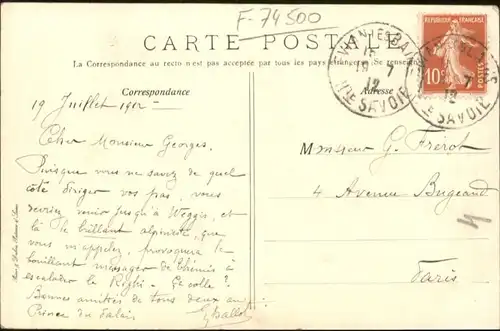 F-74500
CARTE POSTALE
La Correspondance au recto n'est pas acceptée par tous les pays étrangers. (Se renseigner
Correspondance
Adresse
EVIAN LES BAINS
19 7
12
Hte SAVOIE
RÉPUBLIQUE FRANÇAISE
10c
POSTES
19 Juillet 1912
Cher Monsieur Georges,
Puisque vous ne savez de quel
côté diriger vos pas, vous
devriez venir jusqu'à Weggis, et
là le brillant alpiniste, que
vous m'appelez, provoquera le
bouillant messager de Thémis à
escalader le Righi. Ça colle ?
Bonnes amitiés de tous deux au
Prince du Palais
G Ballot
Monsieur G. Frérot
4 Avenue Bugeaud
Paris
4